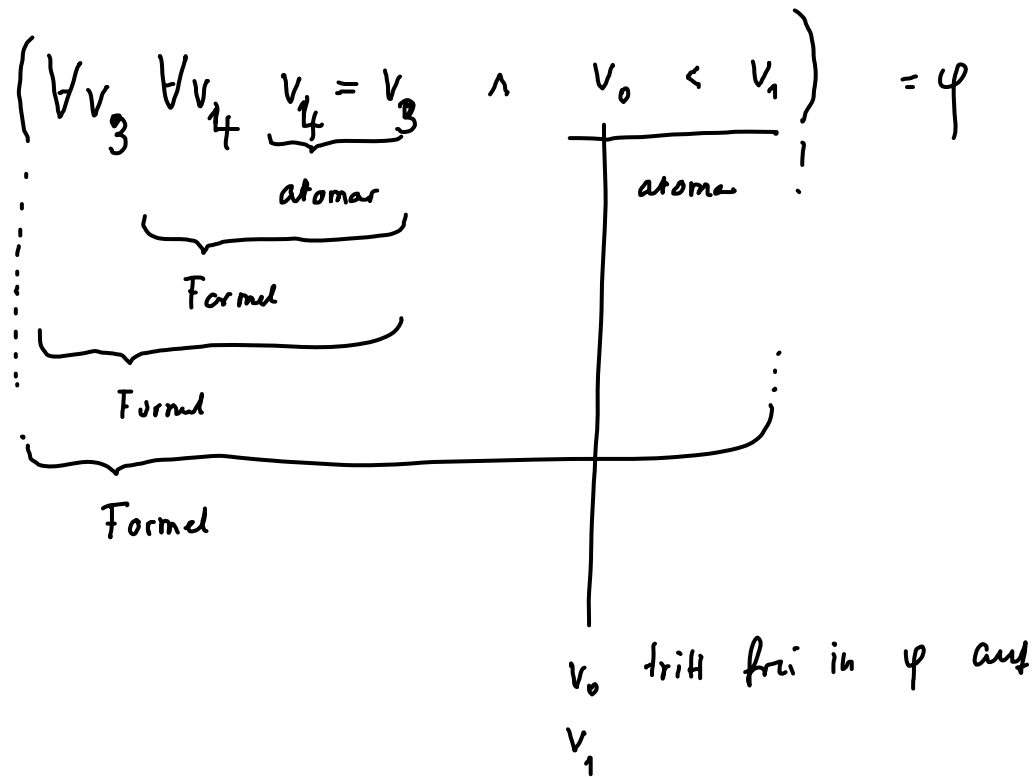 (∀v₃ ∀v₄ v₄ = v₃ ∧ v₀ < v₁) = φ
atomar atoma
Formel
Formel
Formel
v₀ tritt frei in φ auf
v₁